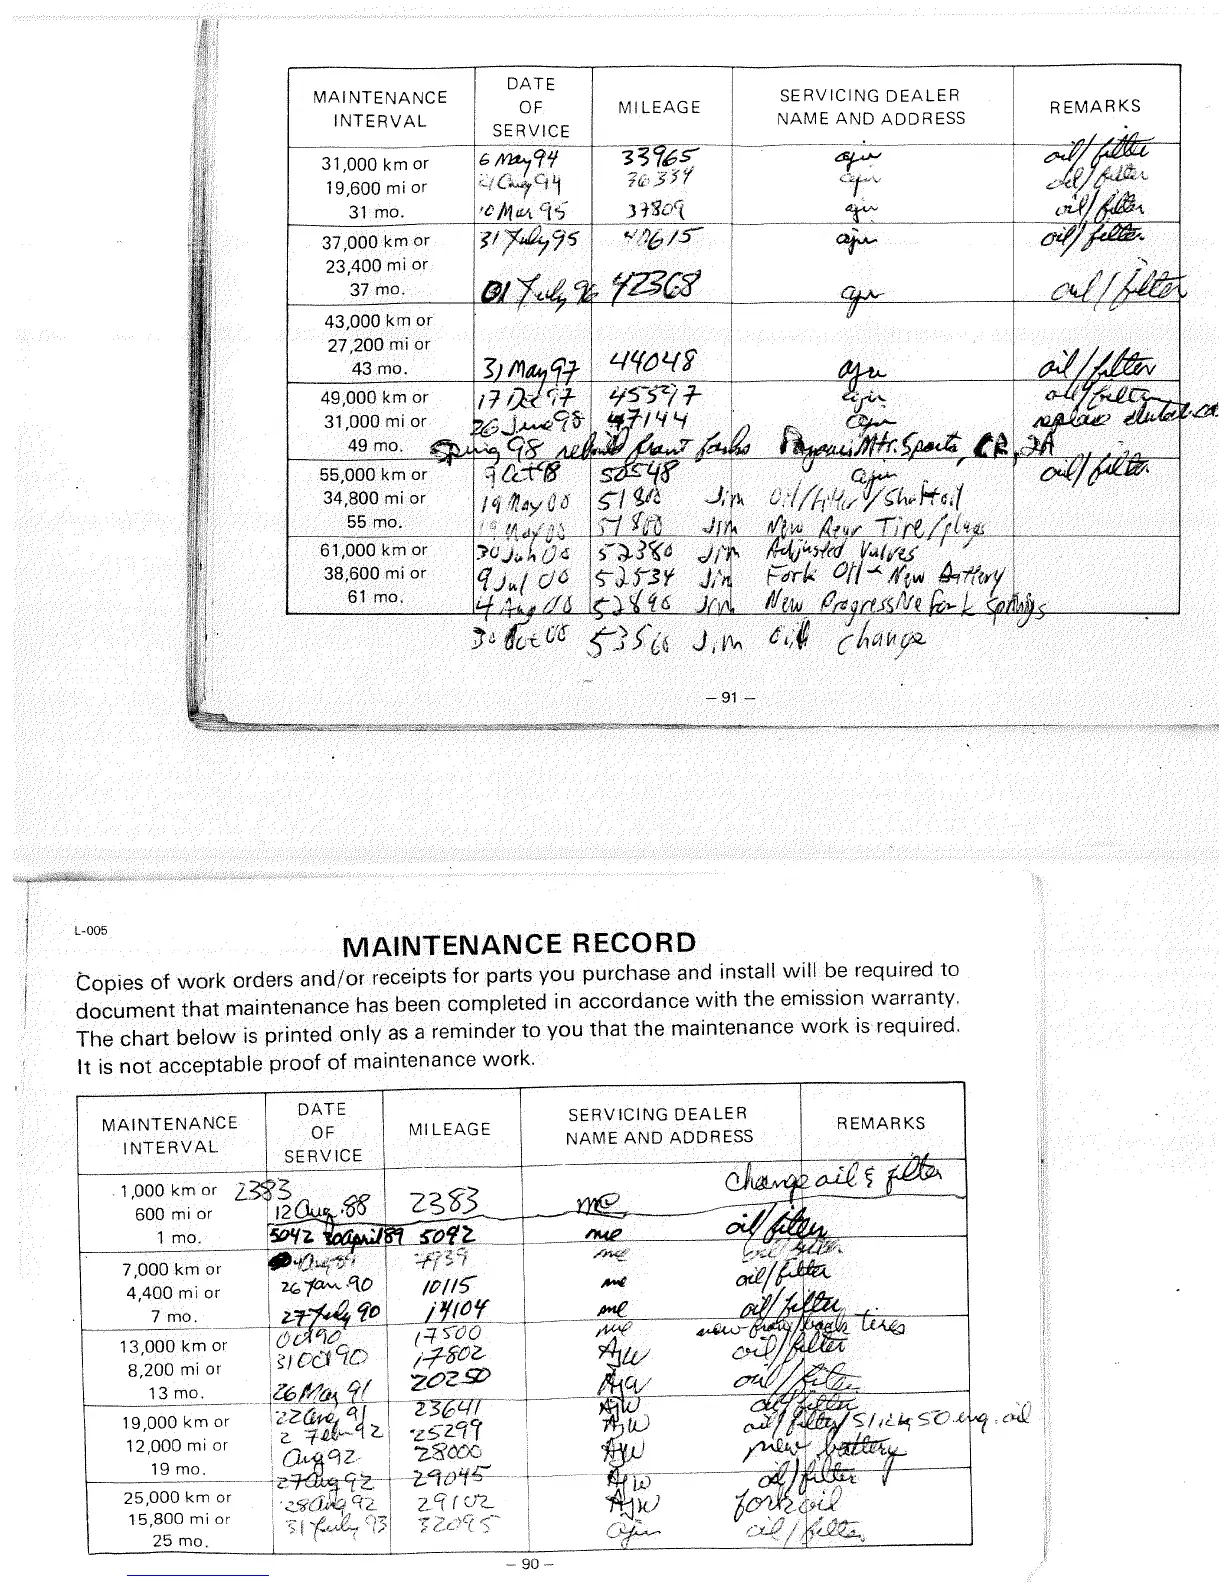 MAINTENANCE INTERVAL DATE OF SERVICE MILEAGE SERVICING DEALER NAME AND ADDRESS REMARKS
31,000 km or 6 May 94 33965 ajw oil/filter
19,600 mi or Aug 94 36334 ajw oil/filter
31 mo. 10 Mar 95 37809 ajw oil/filter
37,000 km or 31 July 95 40615 ajw oil/filter
23,400 mi or
37 mo. 01 July 96 42368 ajw oil/filter
43,000 km or
27,200 mi or
43 mo. 31 May 97 44048 ajw oil/filter
49,000 km or 17 Oct 97 ajw oil/filter
31,000 mi or 26 June 98 47144 ajw replace
49 mo. Spring 98 rebuild front forks Mtr. Sports, CR, IA
55,000 km or 9 Oct 98 50548 ajw oil/filter
34,800 mi or 19 May 00 51800 Jim Oil/filter/Shaft oil
55 mo. 19 May 00 51800 Jim New Rear Tire/plugs
61,000 km or 30 Jun 00 52380 Jim Adjusted Valves
38,600 mi or 9 Jul 00 52534 Jim Fork Oil New Battery
61 mo. 4 Aug 00 52890 Jim New Progressive fork Springs
30 Oct 00 53566 Jim Oil change
– 91 –
L-005
MAINTENANCE RECORD
Copies of work orders and/or receipts for parts you purchase and install will be required to
document that maintenance has been completed in accordance with the emission warranty.
The chart below is printed only as a reminder to you that the maintenance work is required.
It is not acceptable proof of maintenance work.
MAINTENANCE INTERVAL DATE OF SERVICE MILEAGE SERVICING DEALER NAME AND ADDRESS REMARKS
1,000 km or 2383 change oil & filter
600 mi or 12 Aug 88 2383 me
1 mo. 5042 30 april 89 5042 me oil/filter
7,000 km or Aug 89 7939 me oil/filter
4,400 mi or 26 Jan 90 10115 me oil/filter
7 mo. 27 July 90 14104 me oil/filter
13,000 km or Oct 90 17500 me new front/back tires
8,200 mi or 31 Oct 90 17802 AJW oil/filter
13 mo. 26 Mar 91 20250 AJW oil/filter
19,000 km or 22 Aug 91 23641 AJW oil/filter
12,000 mi or 2 Feb 92 25299 AJW oil/filter/Slick 50 eng. oil
19 mo. Aug 92 28000 AJW new battery
27 Aug 92 29045 AJW oil/filter
25,000 km or 28 Aug 92 29102 AJW fork oil
15,800 mi or 31 July 93 32095 ajw oil/filter
25 mo.
– 90 –